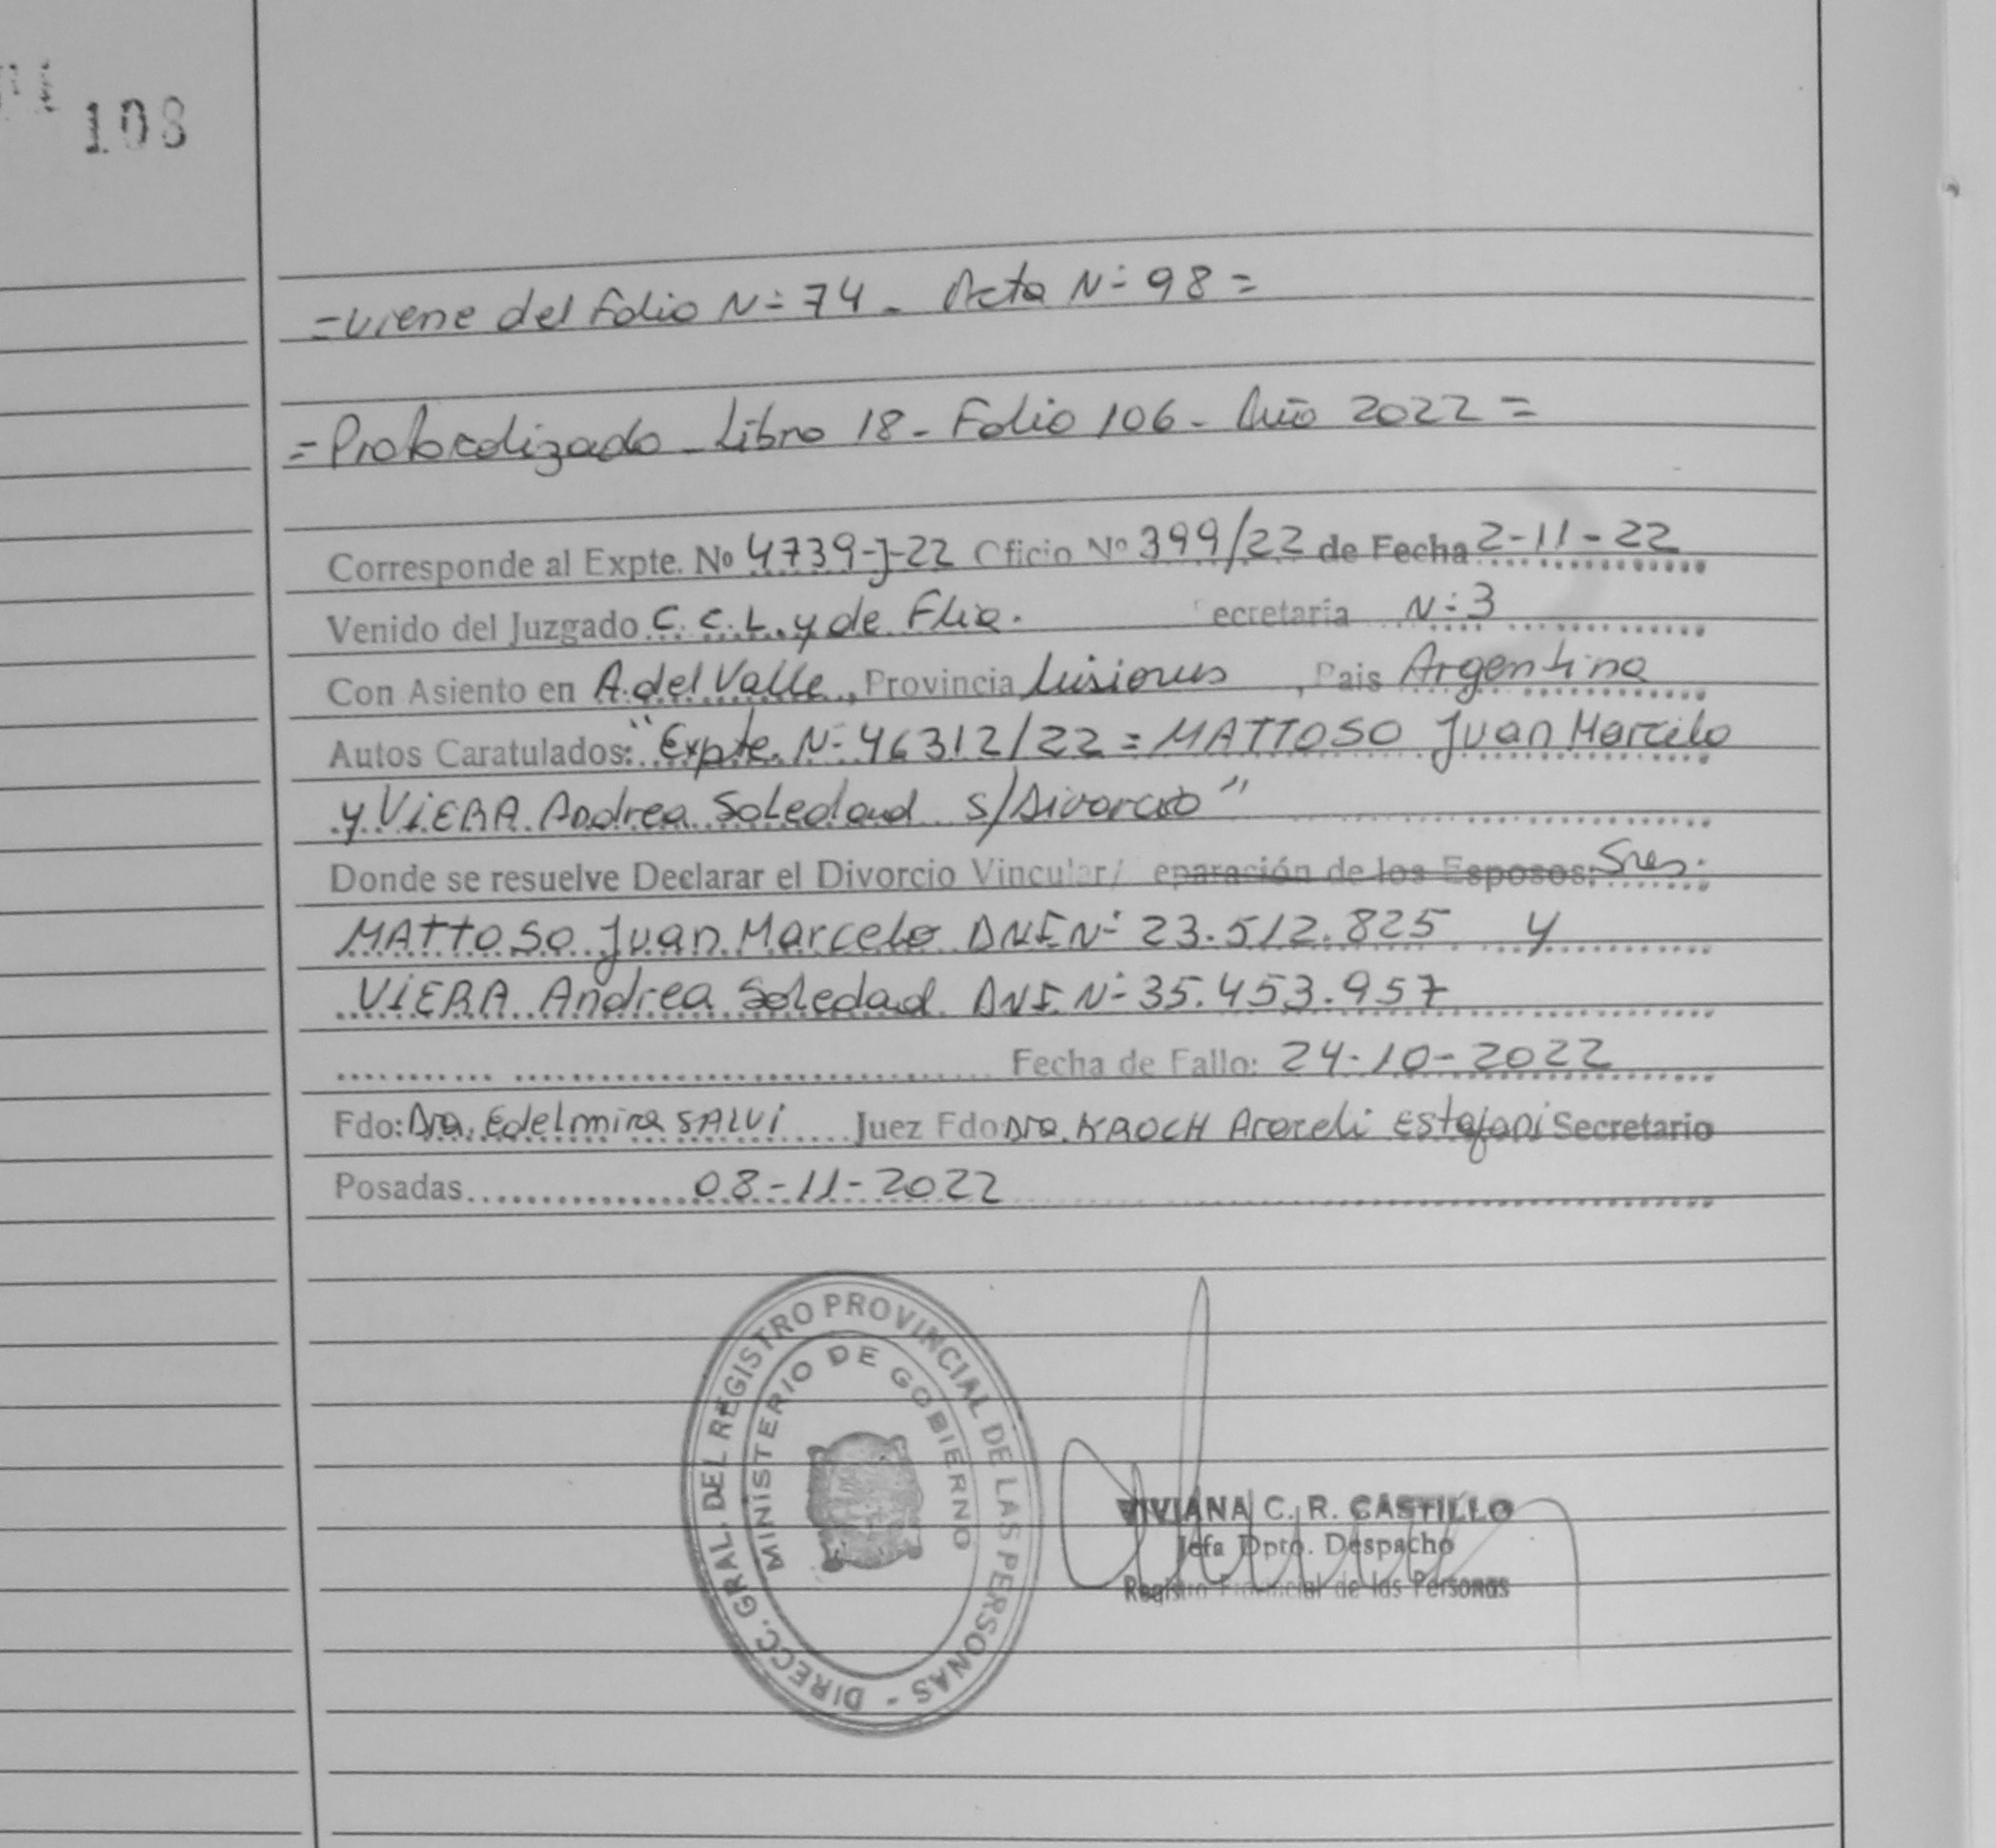 108
=Viene del Folio N= 74 - Acta N= 98 =
=Protocolizado - Libro 18 - Folio 106 - Año 2022 =
Corresponde al Expte. Nº 4739-J-22 Oficio Nº 399/22 de Fecha 2-11-22
Venido del Juzgado C. C. L. y de Flia. ecretaría N= 3
Con Asiento en A. del Valle, Provincia Misiones, Pais Argentina
Autos Caratulados: "Expte. N= 46312/22 = MATTOSO Juan Marcelo
y VIERA Andrea Soledad s/Divorcio"
Donde se resuelve Declarar el Divorcio Vincular/ eparación de los Esposos: Sres.
MATTOSO Juan Marcelo DNI N= 23.512.825 y
VIERA Andrea Soledad DNI N= 35.453.957
Fecha de Fallo: 24-10-2022
Fdo: Dra. Edelmira SALVI Juez Fdo Dra. KROCH Araceli Estefani Secretario
Posadas 08-11-2022
DIRECC. GRAL. DEL REGISTRO PROVINCIAL DE LAS PERSONAS -
MINISTERIO DE GOBIERNO
VIVIANA C. R. CASTILLO
Jefa Dpto. Despacho
Registro Provincial de las Personas